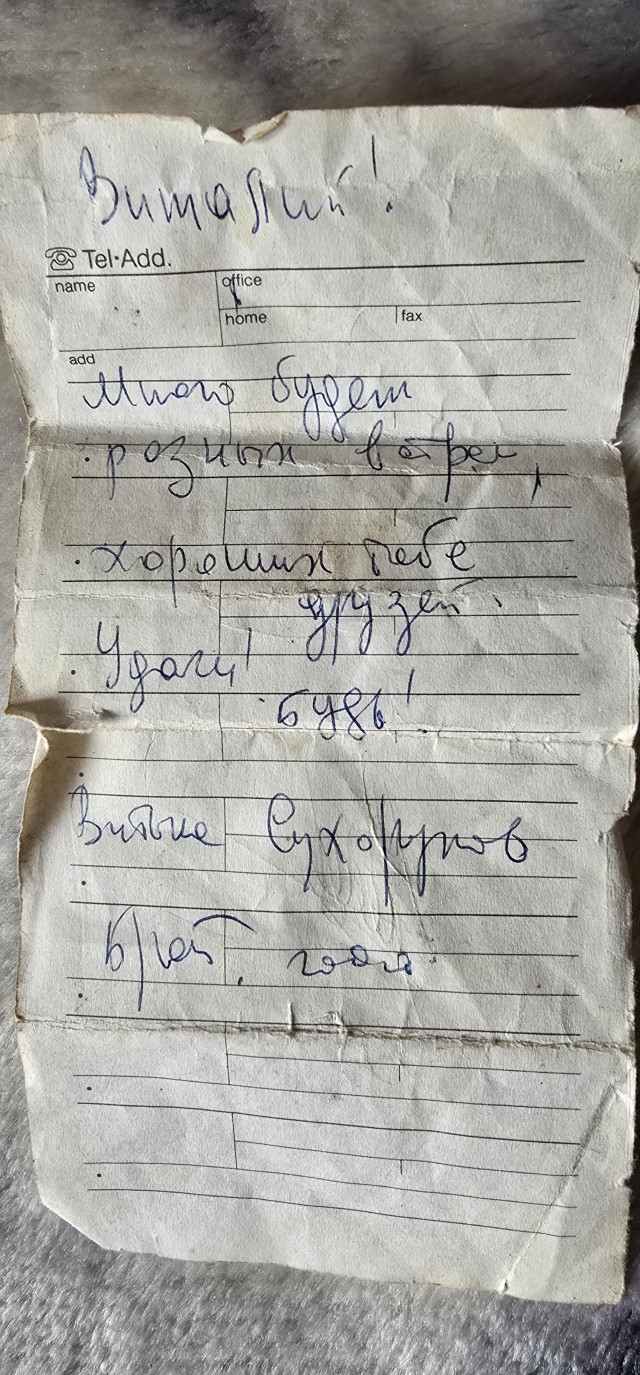 Виталий!
Tel·Add.
name
office
home
fax
add
Много будет
разных встреч,
хороших тебе
друзей.
Удачи!
Будь!
Витька Сухоруков
Брат.